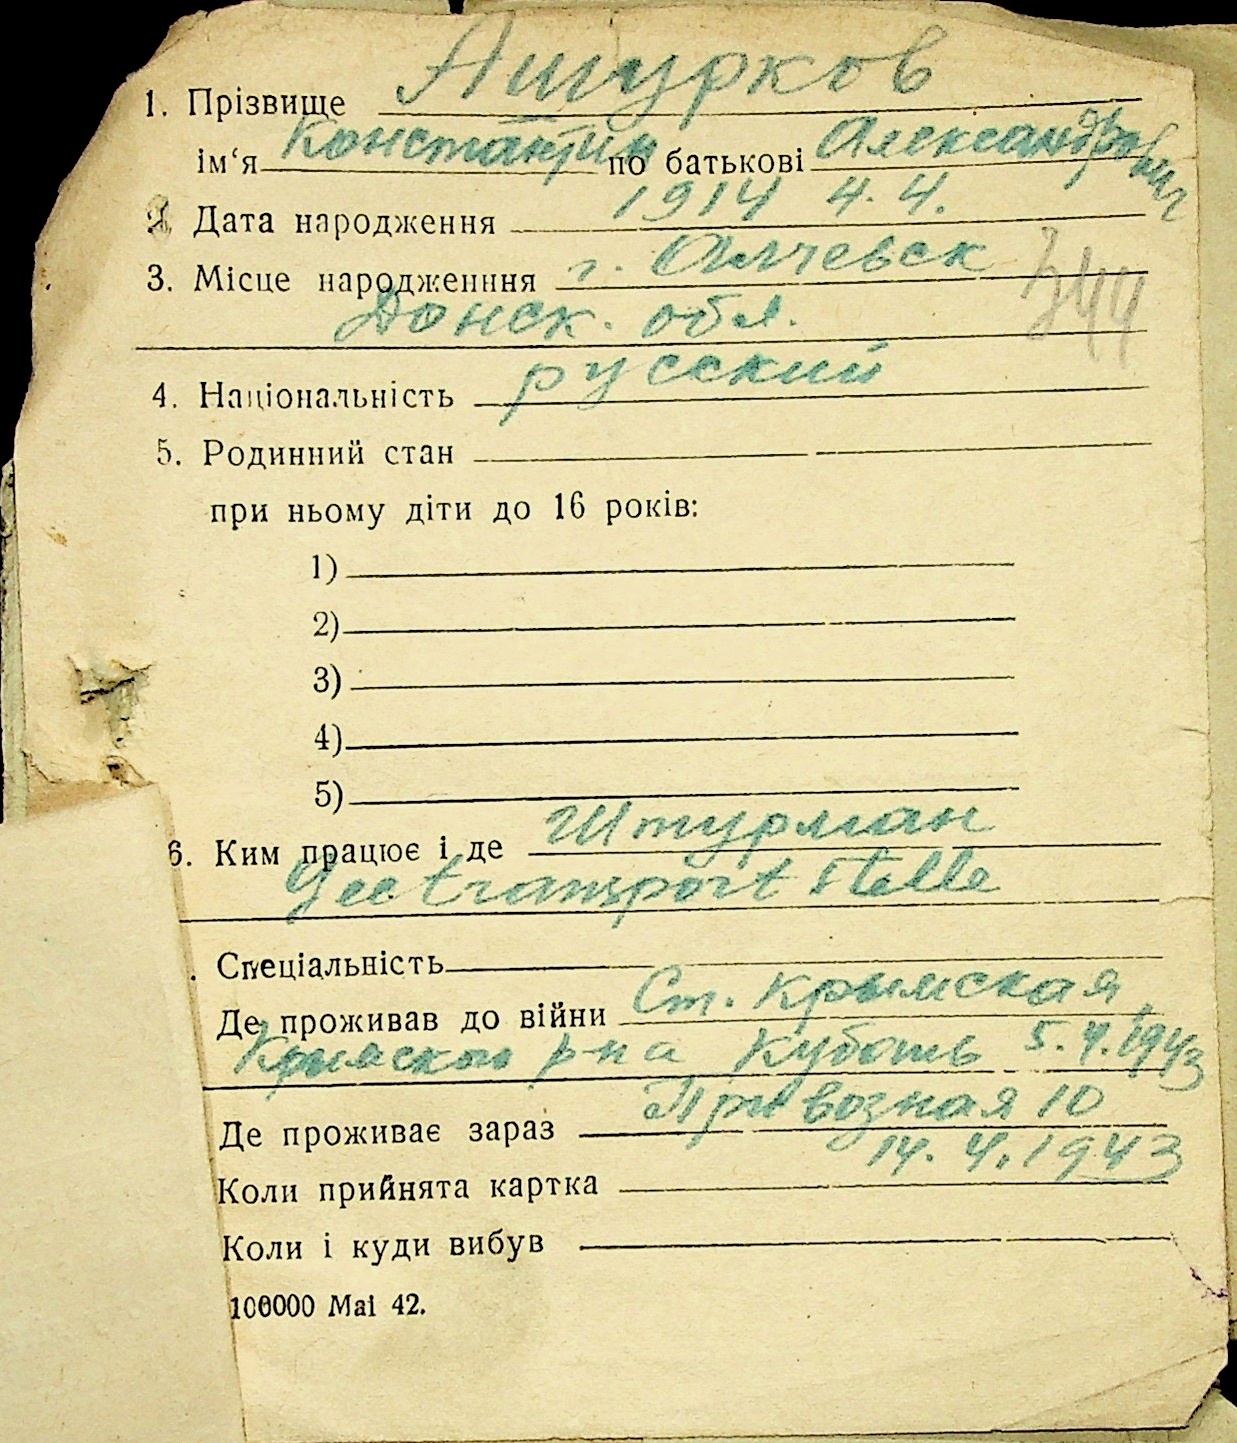 1. Прізвище Ашурков
ім‘я Константин по батькові Александрович
2. Дата народження 1914 4.4.
3. Місце народженння г. Алчевск
Донск. обл.
344
4. Національність русский
5. Родинний стан
при ньому діти до 16 років:
1)
2)
3)
4)
5)
6. Ким працює і де Штурман
Seetransport Stelle
. Спеціальність
Де проживав до війни Ст. Крымская
р-на Кубань 5.4.1943
Де проживає зараз Привозная 10
14.4.1943
Коли прийнята картка
Коли і куди вибув
100000 Mai 42.